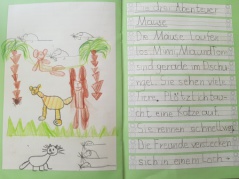 Die drei Abenteuer
Mäuse
Die Mäuse Lou Lou
Mimi, Mau und Tom
sind gerade im Dschun-
gel. Sie sehen viele
Tiere. Plötzlich tau-
cht eine Katze auf.
Sie rennen schnell weg.
Die Freunde verstecken
sich in einem Loch.